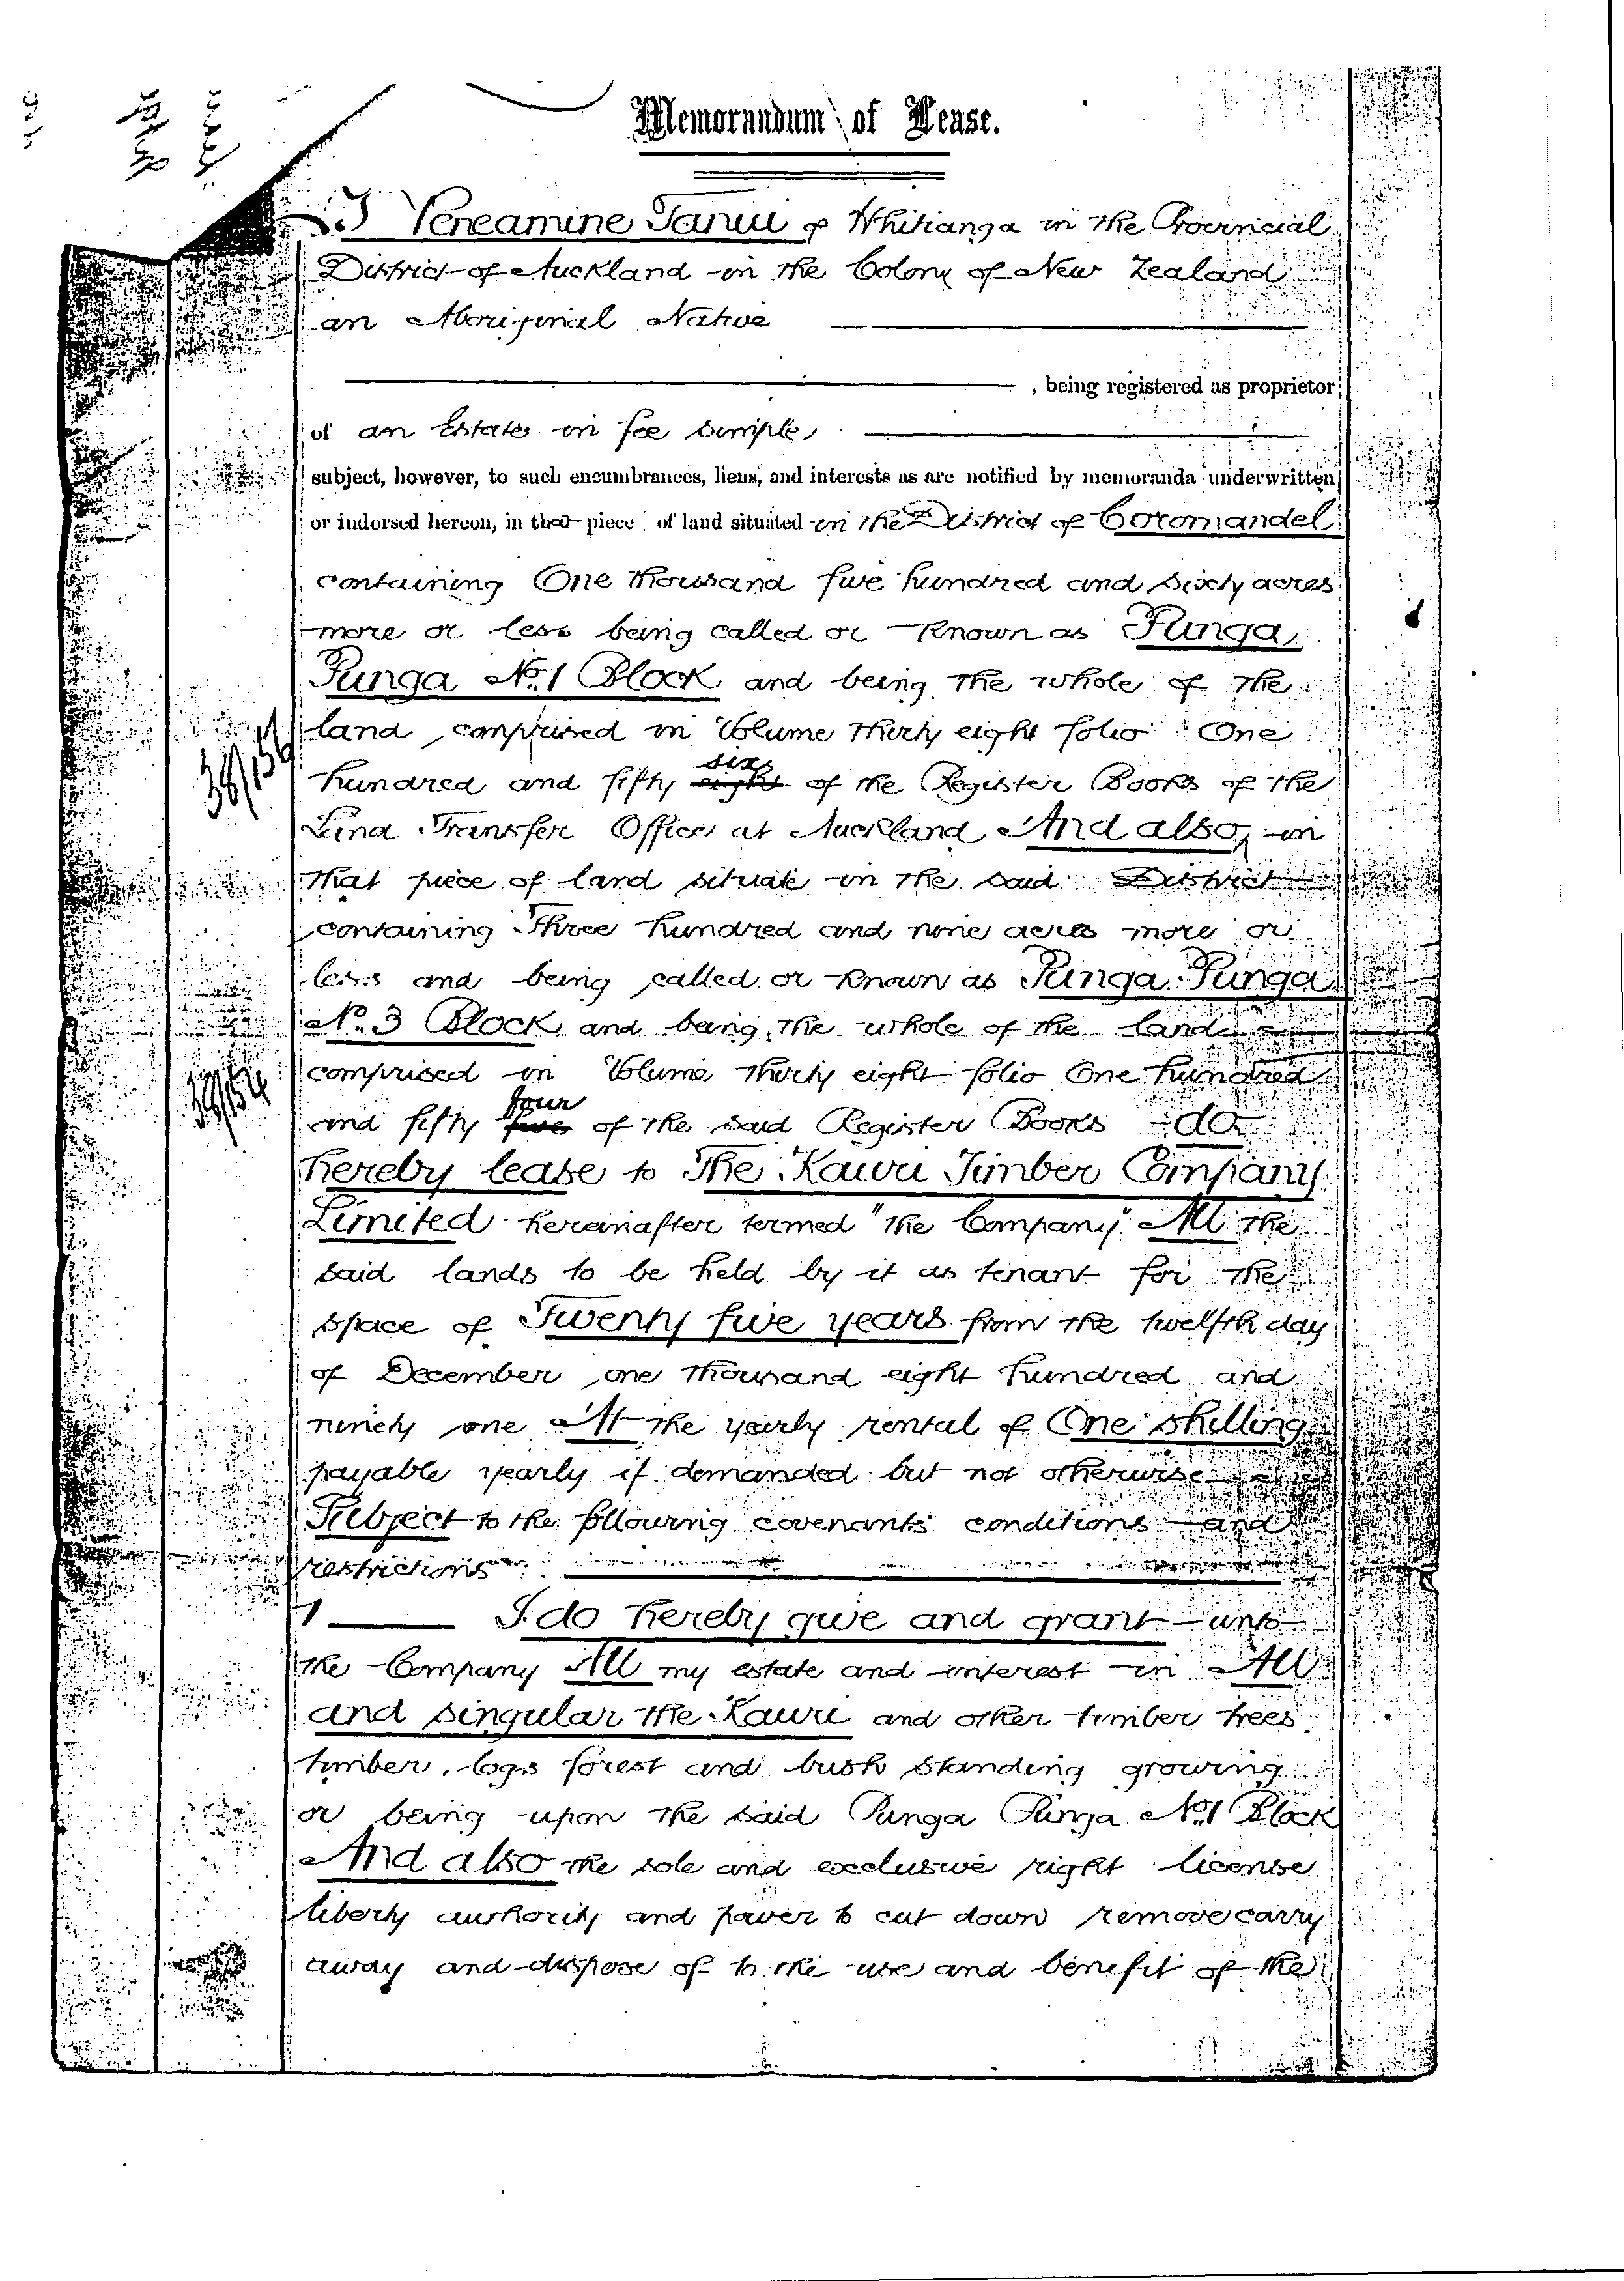 Memorandum of Lease.
I Peneamine Tanui of Whitianga in the Provincial
District of Auckland in the Colony of New Zealand
an Aboriginal Native
, being registered as proprietor
of an Estate in fee simple
subject, however, to such encumbrances, liens, and interests as are notified by memoranda underwritten
or indorsed hereon, in that piece of land situated in the District of Coromandel
containing One thousand five hundred and sixty acres
more or less being called or known as Punga
Punga No. 1 Block and being the whole of the
land comprised in Volume thirty eight folio One
38/156
six
hundred and fifty eight of the Register Books of the
Land Transfer Office at Auckland And also in
that piece of land situate in the said District
containing Three hundred and nine acres more or
less and being called or known as Punga Punga
No. 3 Block and being the whole of the land
comprised in Volume thirty eight folio One hundred
38/154
four
and fifty five of the said Register Books do
hereby lease to The Kauri Timber Company
Limited hereinafter termed "the Company" All the
said lands to be held by it as tenant for the
space of Twenty five years from the twelfth day
of December one thousand eight hundred and
ninety one At the yearly rental of One shilling
payable yearly if demanded but not otherwise
Subject to the following covenants conditions and
restrictions
1 I do hereby give and grant unto
the Company All my estate and interest in All
and singular the Kauri and other timber trees
timber, logs forest and bush standing growing
or being upon the said Punga Punga No. 1 Block
And also the sole and exclusive right license
liberty authority and power to cut down remove carry
away and dispose of to the use and benefit of the